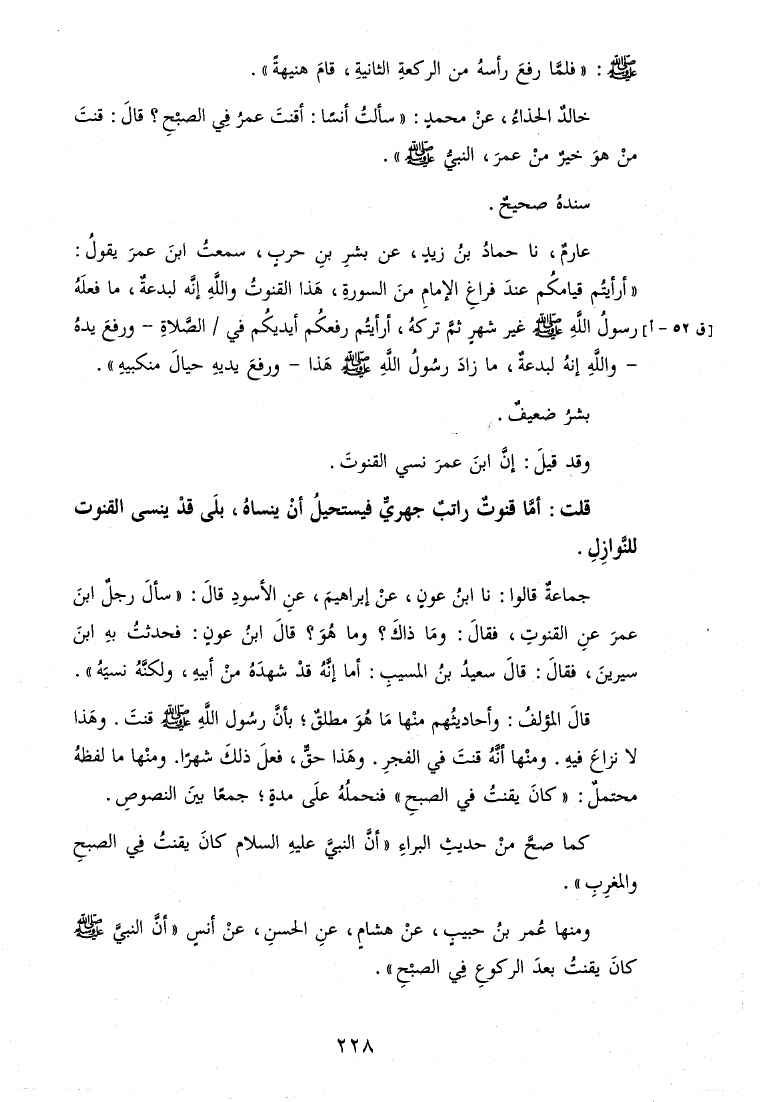 ﷺ : « فلمَّا رفعَ رأسهُ من الركعةِ الثانيةِ ، قامَ هنيهةً » .
خالدٌ الحذاءُ ، عنْ محمدٍ : « سألتُ أنسًا : أقنتَ عمرُ فِي الصبْحِ ؟ قالَ : قنتَ
منْ هوَ خيرٌ منْ عمرَ ، النبيُّ ﷺ » .
سندهُ صحيحٌ .
عارمٌ ، نا حمادُ بنُ زيدٍ ، عن بشرِ بنِ حربٍ ، سمعتُ ابنَ عمرَ يقولُ :
« أرأيتُم قيامكُم عندَ فراغِ الإمامِ منَ السورةِ ، هَذا القنوتُ واللَّهِ إنَّه لبدعةٌ ، ما فعلَهُ
[ق ٥٢ - أ] رسولُ اللَّهِ ﷺ غير شهرٍ ثمَّ تركهُ ، أرأيتُم رفعكُم أيديكُم في / الصَّلاةِ - ورفعَ يدهُ
- واللَّهِ إنهُ لبدعةٌ ، ما زادَ رسُولُ اللَّهِ ﷺ هَذا - ورفعَ يديهِ حيالَ منكبيهِ » .
بشرُ ضعيفٌ .
وقد قيلَ : إنَّ ابنَ عمرَ نسي القنوتَ .
قلت : أمَّا قنوتٌ راتبٌ جهريٌّ فيستحيلُ أنْ ينساهُ ، بلَى قدْ ينسى القنوت
للنَّوازِلِ .
جماعةٌ قالوا : نا ابنُ عونٍ ، عنْ إبراهيمَ ، عنِ الأسودِ قالَ : « سألَ رجلٌ ابنَ
عمرَ عنِ القنوتِ ، فقالَ : ومَا ذاكَ ؟ وما هُوَ ؟ قالَ ابنُ عونٍ : فحدثتُ بهِ ابنَ
سيرينَ ، فقالَ : قالَ سعيدُ بنُ المسيبِ : أما إنَّهُ قدْ شهدَهُ منْ أبيهِ ، ولكنَّهُ نسيَهُ » .
قالَ المؤلفُ : وأحاديثُهم منْها مَا هُوَ مطلقٌ ؛ بأنَّ رسُول اللَّهِ ﷺ قنتَ . وهَذا
لا نزاعَ فيهِ . ومنْها أنَّهُ قنتَ في الفجرِ . وهَذا حقٌّ ، فعلَ ذلكَ شهرًا. ومنْها ما لفظهُ
محتملٌ : « كانَ يقنتُ في الصبحِ » فنحملُهُ علَى مدةٍ ؛ جمعًا بينَ النصوصِ .
كما صحَّ منْ حديثِ البراءِ « أنَّ النبيَّ عليهِ السلام كانَ يقنتُ فِي الصبحِ
والمغربِ » .
ومنها عُمر بنُ حبيبٍ ، عنْ هشامٍ ، عنِ الحسنِ ، عنْ أنسٍ « أنَّ النبيَّ ﷺ
كانَ يقنتُ بعدَ الركوعِ فِي الصبْحِ » .
٢٢٨